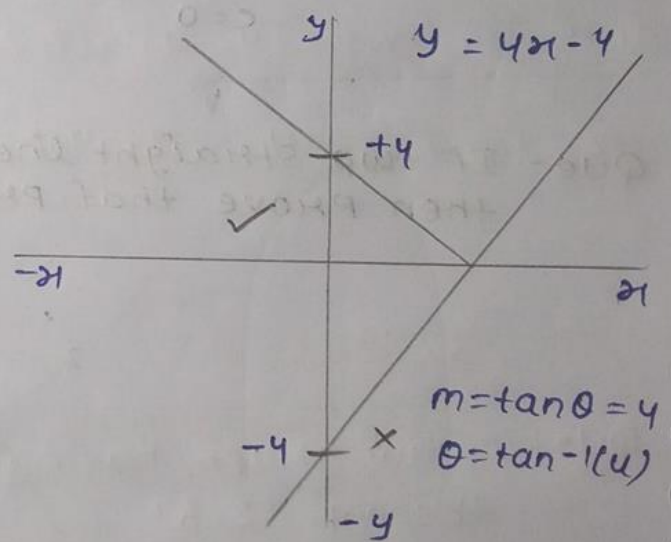 y
y = 4x - 4
+4
-x
x
m = tanθ = 4
-4
θ = tan-1(4)
-y